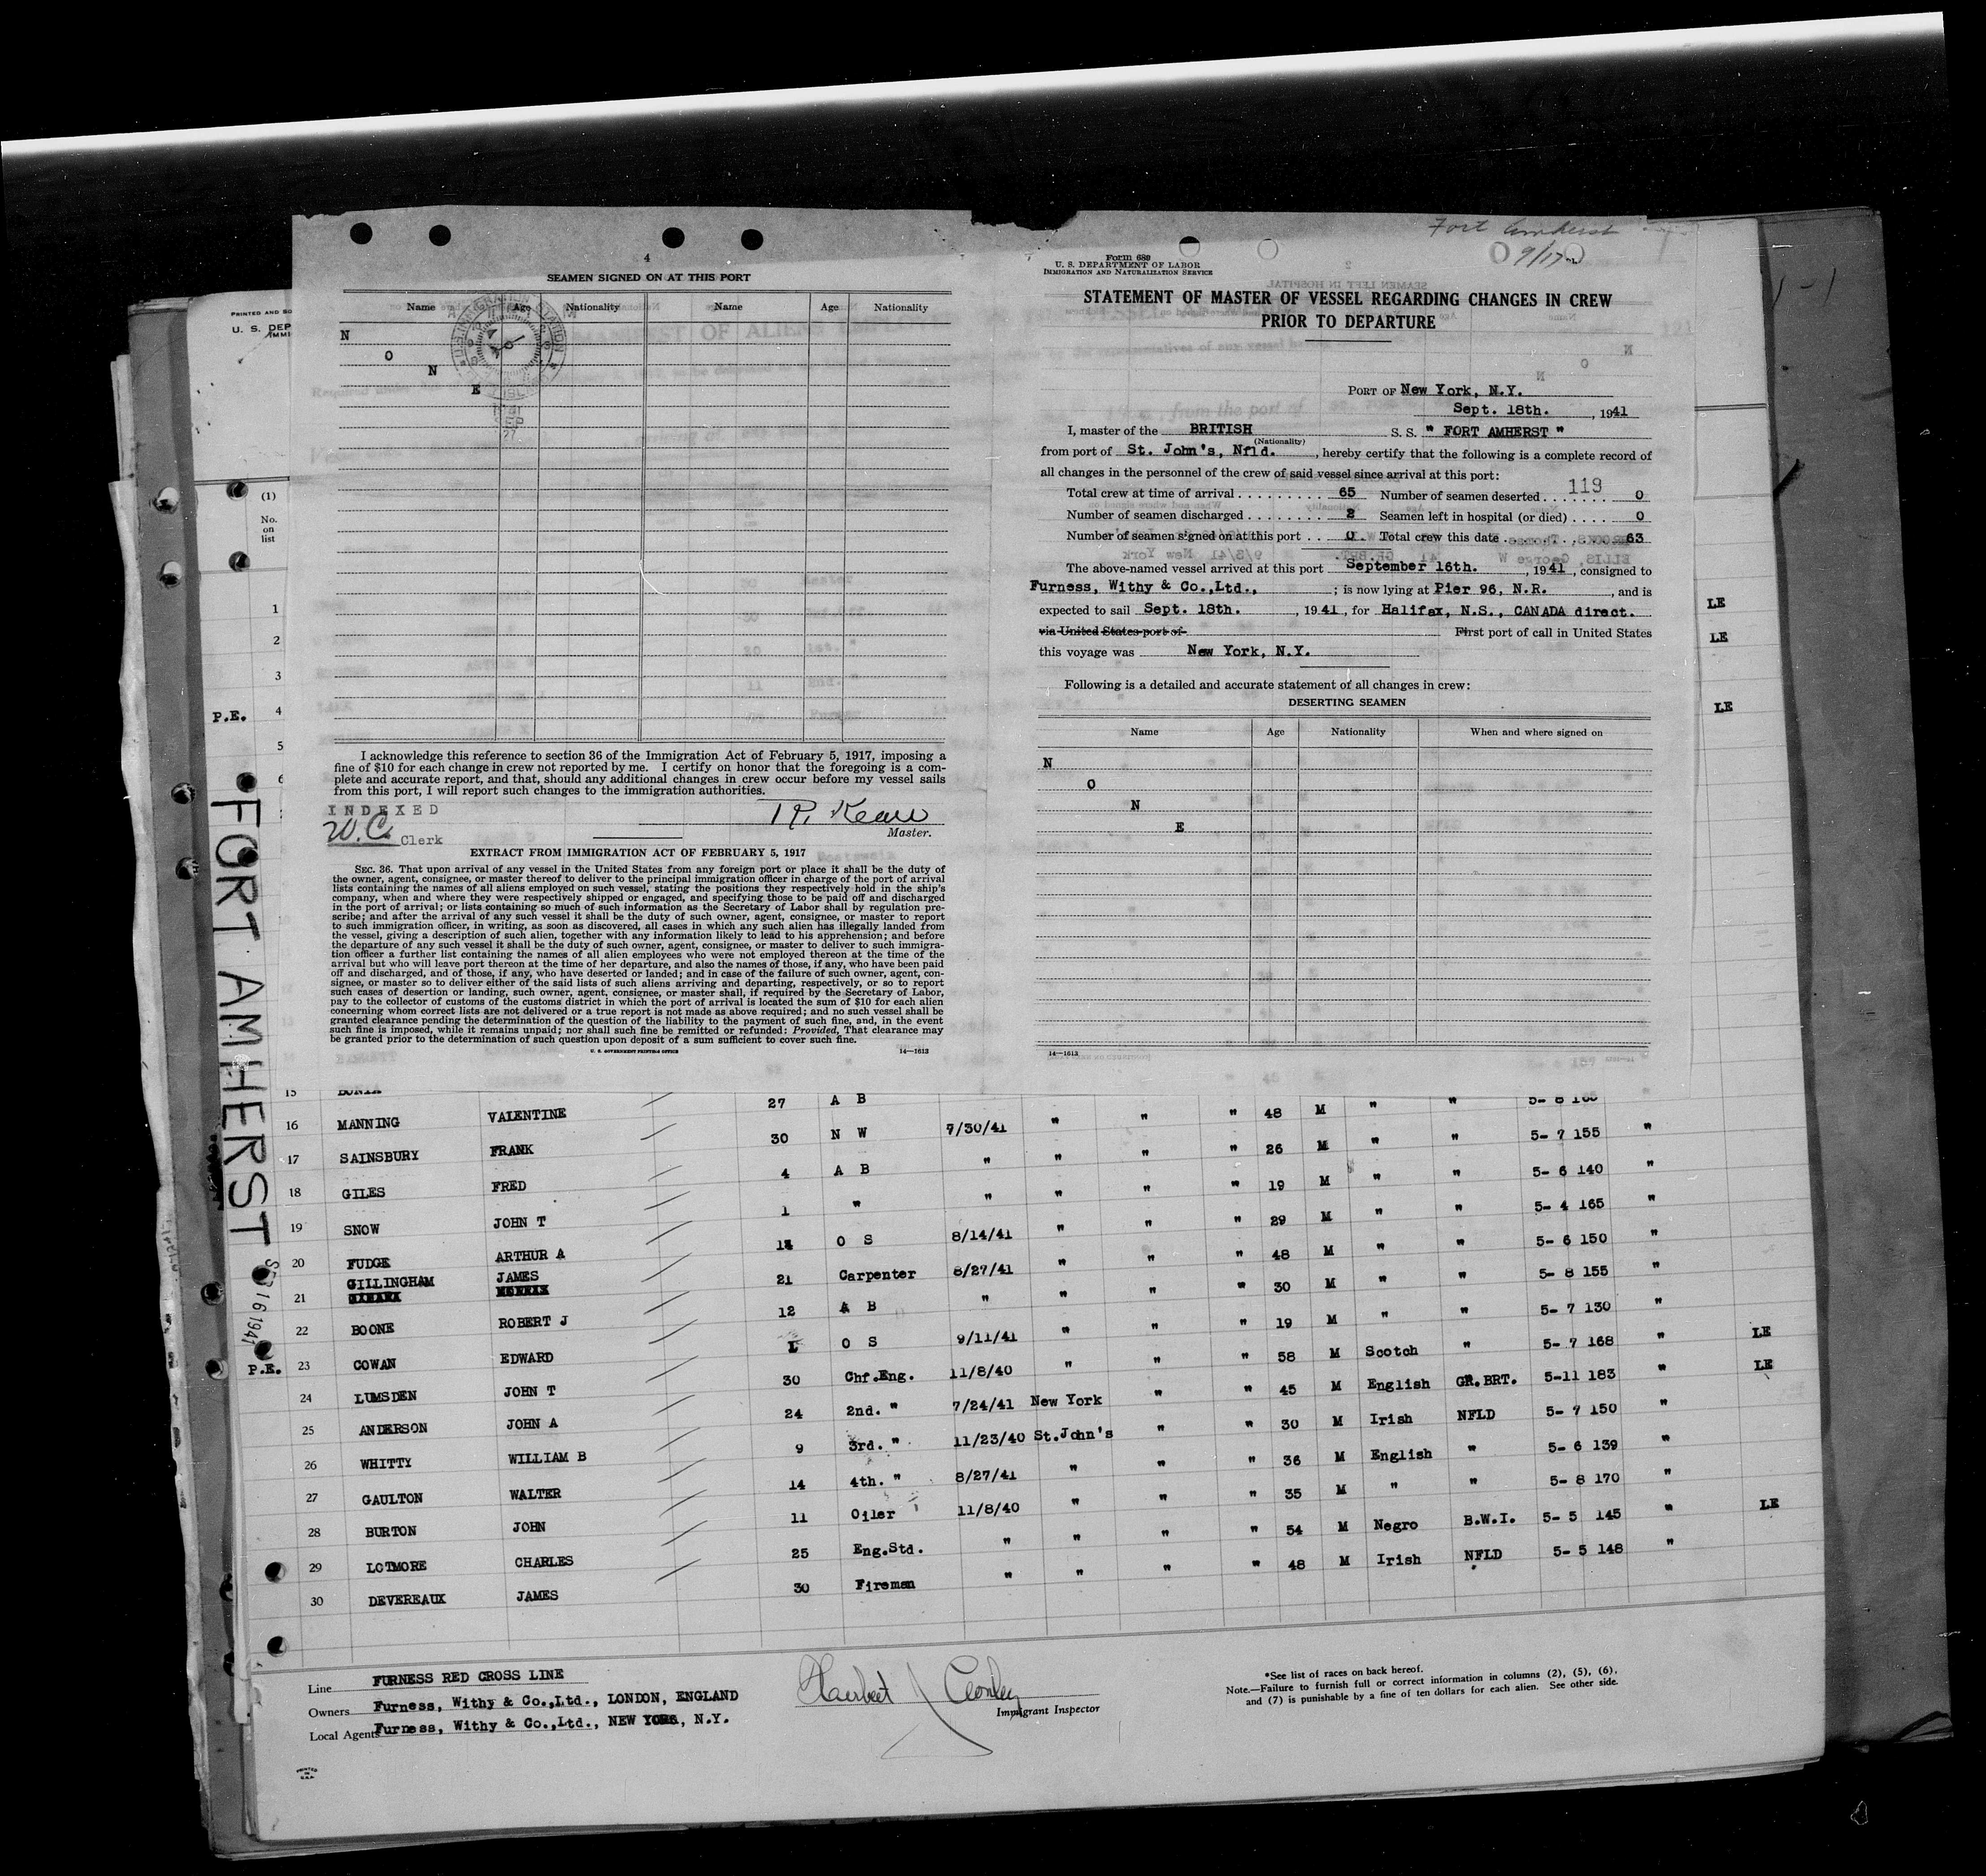 4
SEAMEN SIGNED ON AT THIS PORT
Name Age Nationality Name Age Nationality
N
O
N
E
1941
SEP
27
I acknowledge this reference to section 36 of the Immigration Act of February 5, 1917, imposing a
fine of $10 for each change in crew not reported by me. I certify on honor that the foregoing is a com-
plete and accurate report, and that, should any additional changes in crew occur before my vessel sails
from this port, I will report such changes to the immigration authorities.
INDEXED
W.C. Clerk
Master.
EXTRACT FROM IMMIGRATION ACT OF FEBRUARY 5, 1917
SEC. 36. That upon arrival of any vessel in the United States from any foreign port or place it shall be the duty of
the owner, agent, consignee, or master thereof to deliver to the principal immigration officer in charge of the port of arrival
lists containing the names of all aliens employed on such vessel, stating the positions they respectively hold in the ship's
company, when and where they were respectively shipped or engaged, and specifying those to be paid off and discharged
in the port of arrival; or lists containing so much of such information as the Secretary of Labor shall by regulation pre-
scribe; and after the arrival of any such vessel it shall be the duty of such owner, agent, consignee, or master to report
to such immigration officer, in writing, as soon as discovered, all cases in which any such alien has illegally landed from
the vessel, giving a description of such alien, together with any information likely to lead to his apprehension; and before
the departure of any such vessel it shall be the duty of such owner, agent, consignee, or master to deliver to such immigra-
tion officer a further list containing the names of all alien employees who were not employed thereon at the time of the
arrival but who will leave port thereon at the time of her departure, and also the names of those, if any, who have been paid
off and discharged, and of those, if any, who have deserted or landed; and in case of the failure of such owner, agent, con-
signee, or master so to deliver either of the said lists of such aliens arriving and departing, respectively, or so to report
such cases of desertion or landing, such owner, agent, consignee, or master shall, if required by the Secretary of Labor,
pay to the collector of customs of the customs district in which the port of arrival is located the sum of $10 for each alien
concerning whom correct lists are not delivered or a true report is not made as above required; and no such vessel shall be
granted clearance pending the determination of the question of the liability to the payment of such fine, and, in the event
such fine is imposed, while it remains unpaid; nor shall such fine be remitted or refunded: Provided, That clearance may
be granted prior to the determination of such question upon deposit of a sum sufficient to cover such fine.
U. S. GOVERNMENT PRINTING OFFICE 14—1613
Fort Amherst
9/17
Form 689
U. S. DEPARTMENT OF LABOR
IMMIGRATION AND NATURALIZATION SERVICE
STATEMENT OF MASTER OF VESSEL REGARDING CHANGES IN CREW
PRIOR TO DEPARTURE
PORT OF New York, N.Y.
Sept. 18th. , 1941
I, master of the BRITISH S. S. " FORT AMHERST "
(Nationality)
from port of St. John's, Nfld. , hereby certify that the following is a complete record of
all changes in the personnel of the crew of said vessel since arrival at this port:
119
Total crew at time of arrival 65 Number of seamen deserted 0
Number of seamen discharged 2 Seamen left in hospital (or died) 0
Number of seamen signed on at this port 0 Total crew this date 63
The above-named vessel arrived at this port September 16th. , 1941, consigned to
Furness, Withy & Co.,Ltd., ; is now lying at Pier 96, N.R. , and is
expected to sail Sept. 18th. , 1941, for Halifax, N.S., CANADA direct.
via United States port of First port of call in United States
this voyage was New York, N.Y.
Following is a detailed and accurate statement of all changes in crew:
DESERTING SEAMEN
Name Age Nationality When and where signed on
N
O
N
E
14—1613
PRINTED AND SO
U. S. DEP
IMMI
(1)
No.
on
list
1 LE
2 LE
3
P.E. 4 LE
5
6
FORT AMHERST
SEP 16 1941
15
16 MANNING VALENTINE 27 A B " " " 48 M " " 5- 8
17 SAINSBURY FRANK 30 N W 7/30/41 " " " 26 M " " 5- 7 155 "
18 GILES FRED 4 A B " " " " 19 M " " 5- 6 140 "
19 SNOW JOHN T 1 " " " " " 29 M " " 5- 4 165 "
20 FUDGE ARTHUR A O S 8/14/41 " " " 48 M " " 5- 6 150 "
21 GILLINGHAM JAMES 21 Carpenter 8/27/41 " " " 30 M " " 5- 8 155 "
22 BOONE ROBERT J 12 A B " " " " 19 M " " 5- 7 130 "
P.E. 23 COWAN EDWARD O S 9/11/41 " " " 58 M Scotch " 5- 7 168 " LE
24 LUMSDEN JOHN T 30 Chf.Eng. 11/8/40 " " " 45 M English GR.BRT. 5-11 183 " LE
25 ANDERSON JOHN A 24 2nd. " 7/24/41 New York " " 30 M Irish NFLD 5- 7 150 "
26 WHITTY WILLIAM B 9 3rd. " 11/23/40 St.John's " " 36 M English " 5- 6 139 "
27 GAULTON WALTER 14 4th. " 8/27/41 " " " 35 M " " 5- 8 170 "
28 BURTON JOHN 11 Oiler 11/8/40 " " " 54 M Negro B.W.I. 5- 5 145 " LE
29 LOTMORE CHARLES 25 Eng.Std. " " " " 48 M Irish NFLD 5- 5 148 "
30 DEVEREAUX JAMES 30 Fireman " " "
Line FURNESS RED CROSS LINE
Owners Furness, Withy & Co.,Ltd., LONDON, ENGLAND
Local Agents Furness, Withy & Co.,Ltd., NEW YORK, N.Y.
Immigrant Inspector
*See list of races on back hereof.
Note.—Failure to furnish full or correct information in columns (2), (5), (6),
and (7) is punishable by a fine of ten dollars for each alien. See other side.
PRINTED
IN
U.S.A.